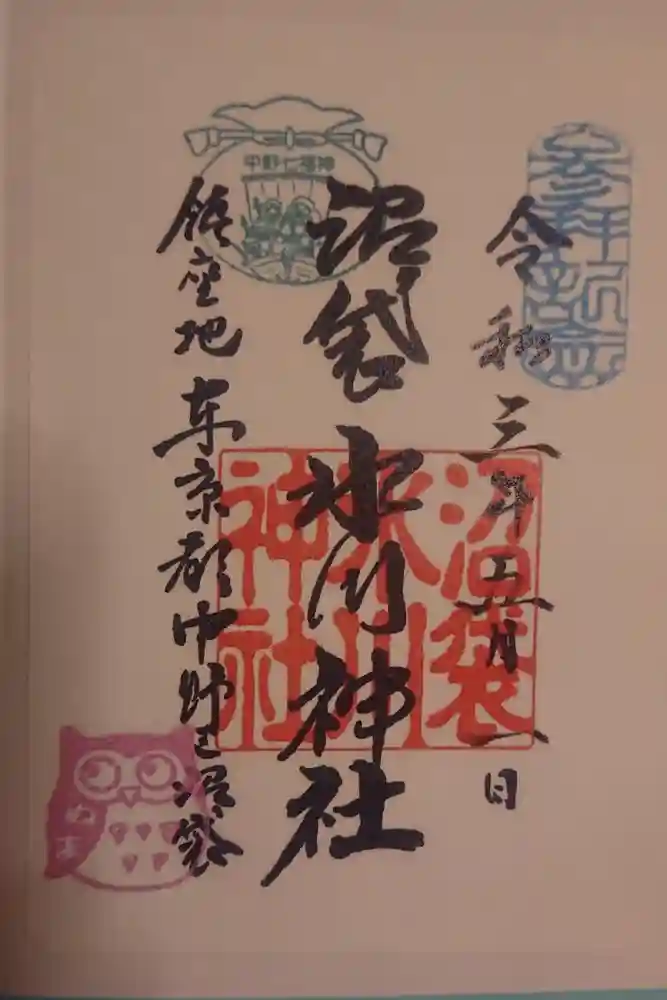 参拝記念
令和三年五月一日
沼袋氷川神社
沼袋
氷川
神社
中野七福神
鎮座地東京都中野区沼袋